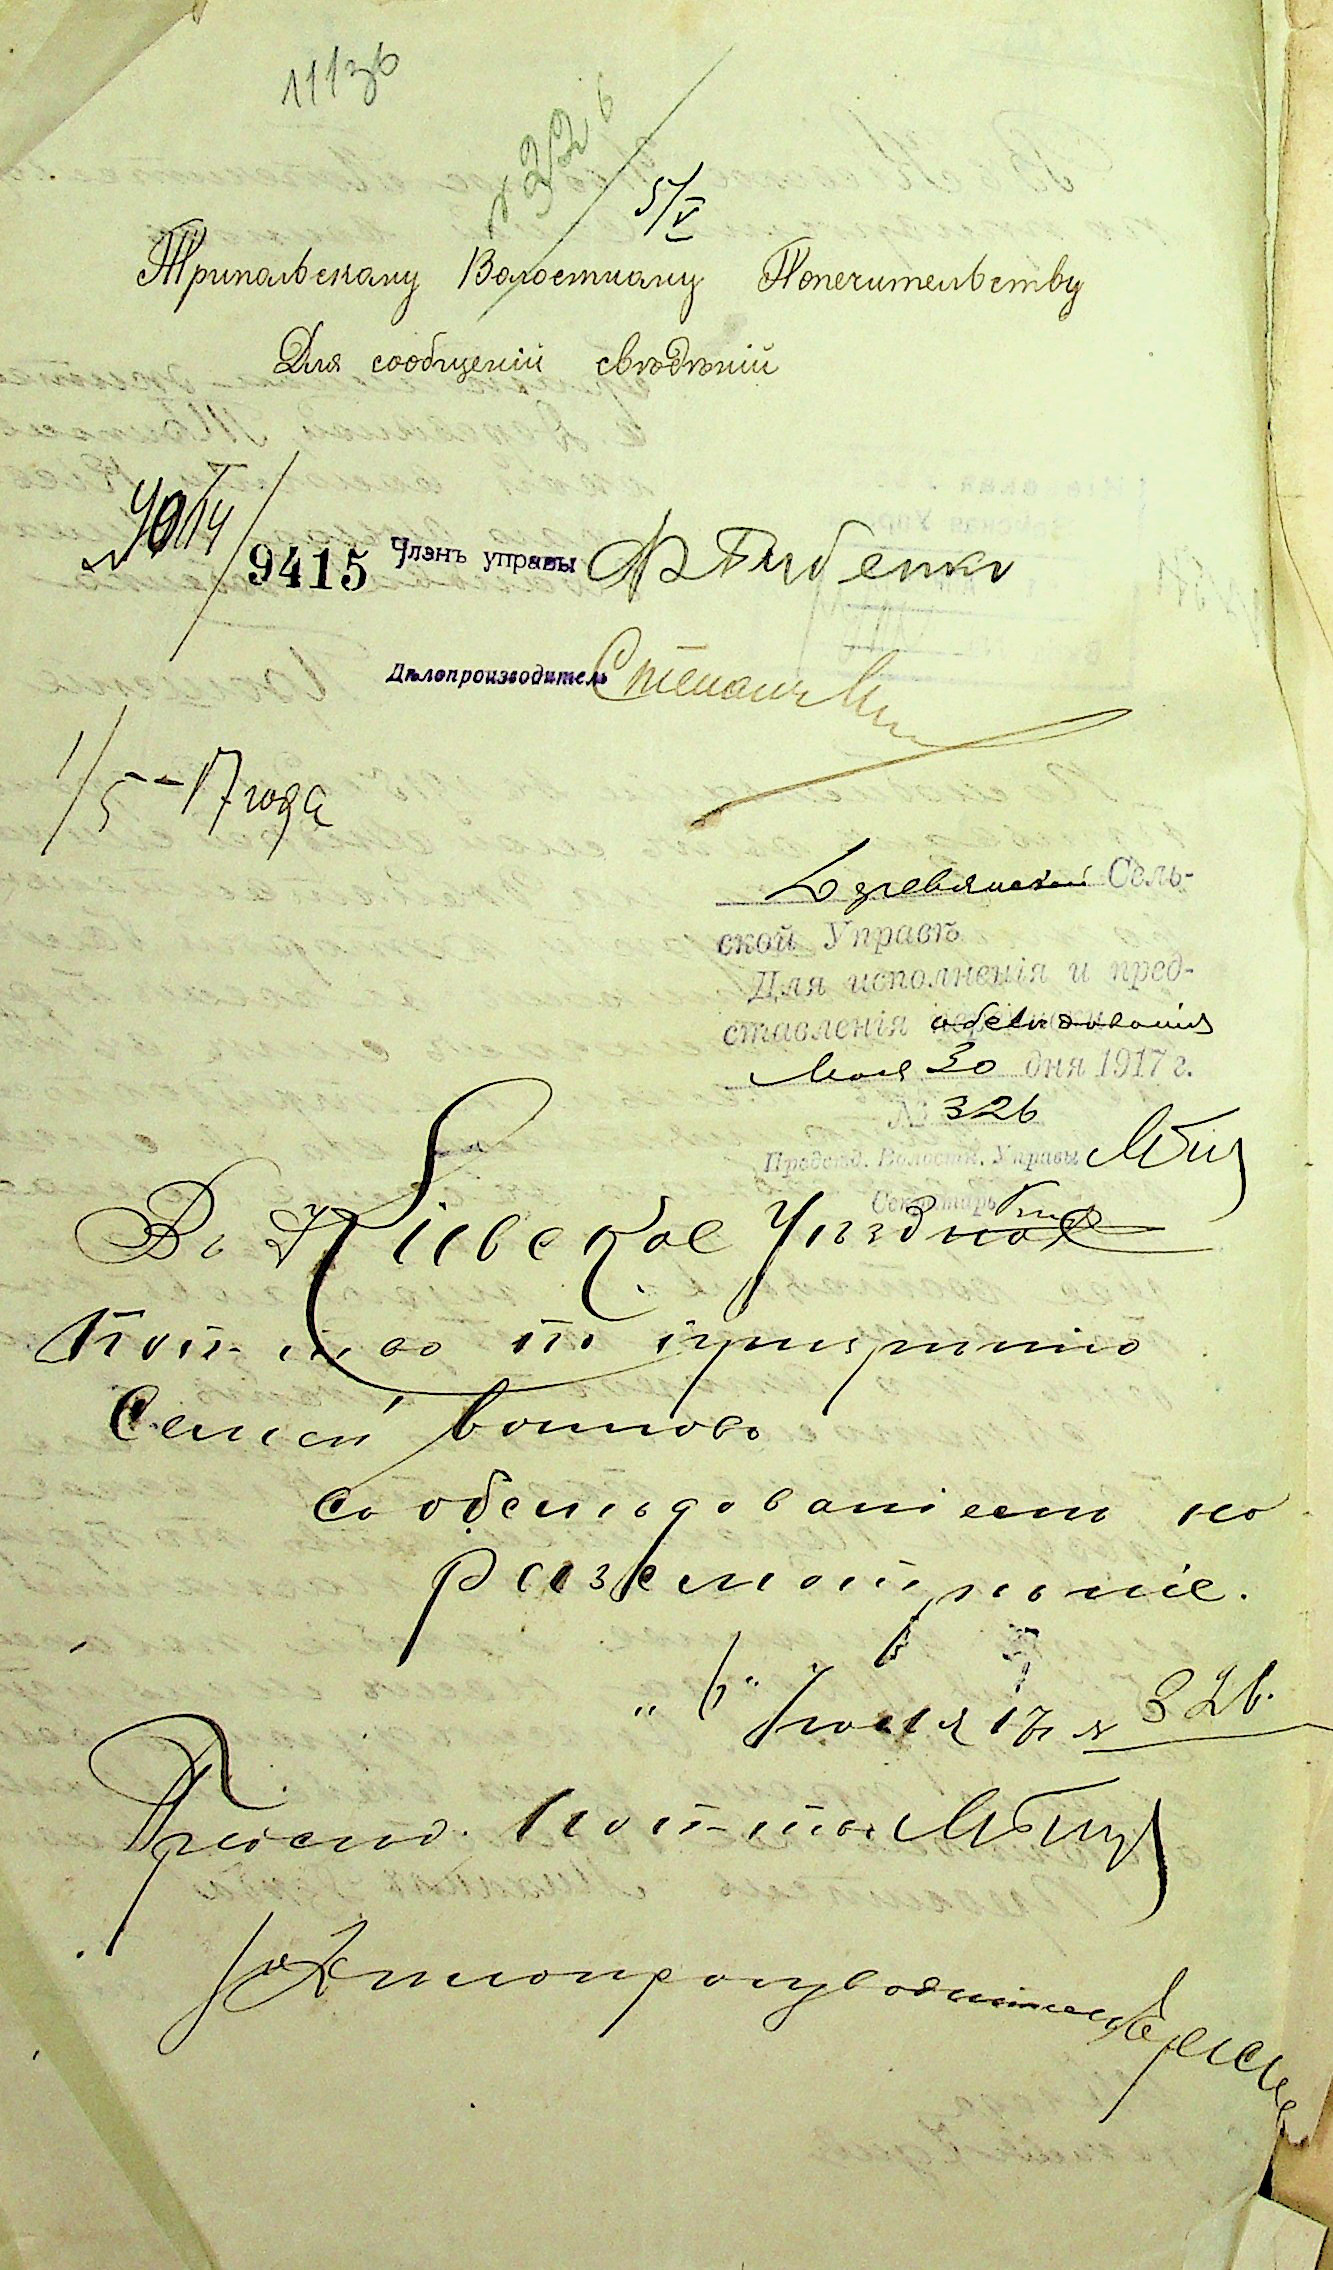 11136
№ 326
5/V
Трипольскому Волостному Попечительству
Для сообщеній свѣдѣній
9415 Членъ управы
Дѣлопроизводитель
1/5–17 года
Деревянской Сель-
ской Управѣ
Для исполненія и пред-
ставленія обслѣдованія
Мая 30 дня 1917 г.
№ 326
Предсѣд. Волостн. Управы
Секретарь
Въ Кіевское Уѣздное
Поп-тво по призрѣнію
Семей воиновъ
съ обслѣдованіемъ на
разсмотрѣніе.
" 6 " Іюня 17 г № 326.
Предсѣд. Поп-тва
Дѣлопроизводитель